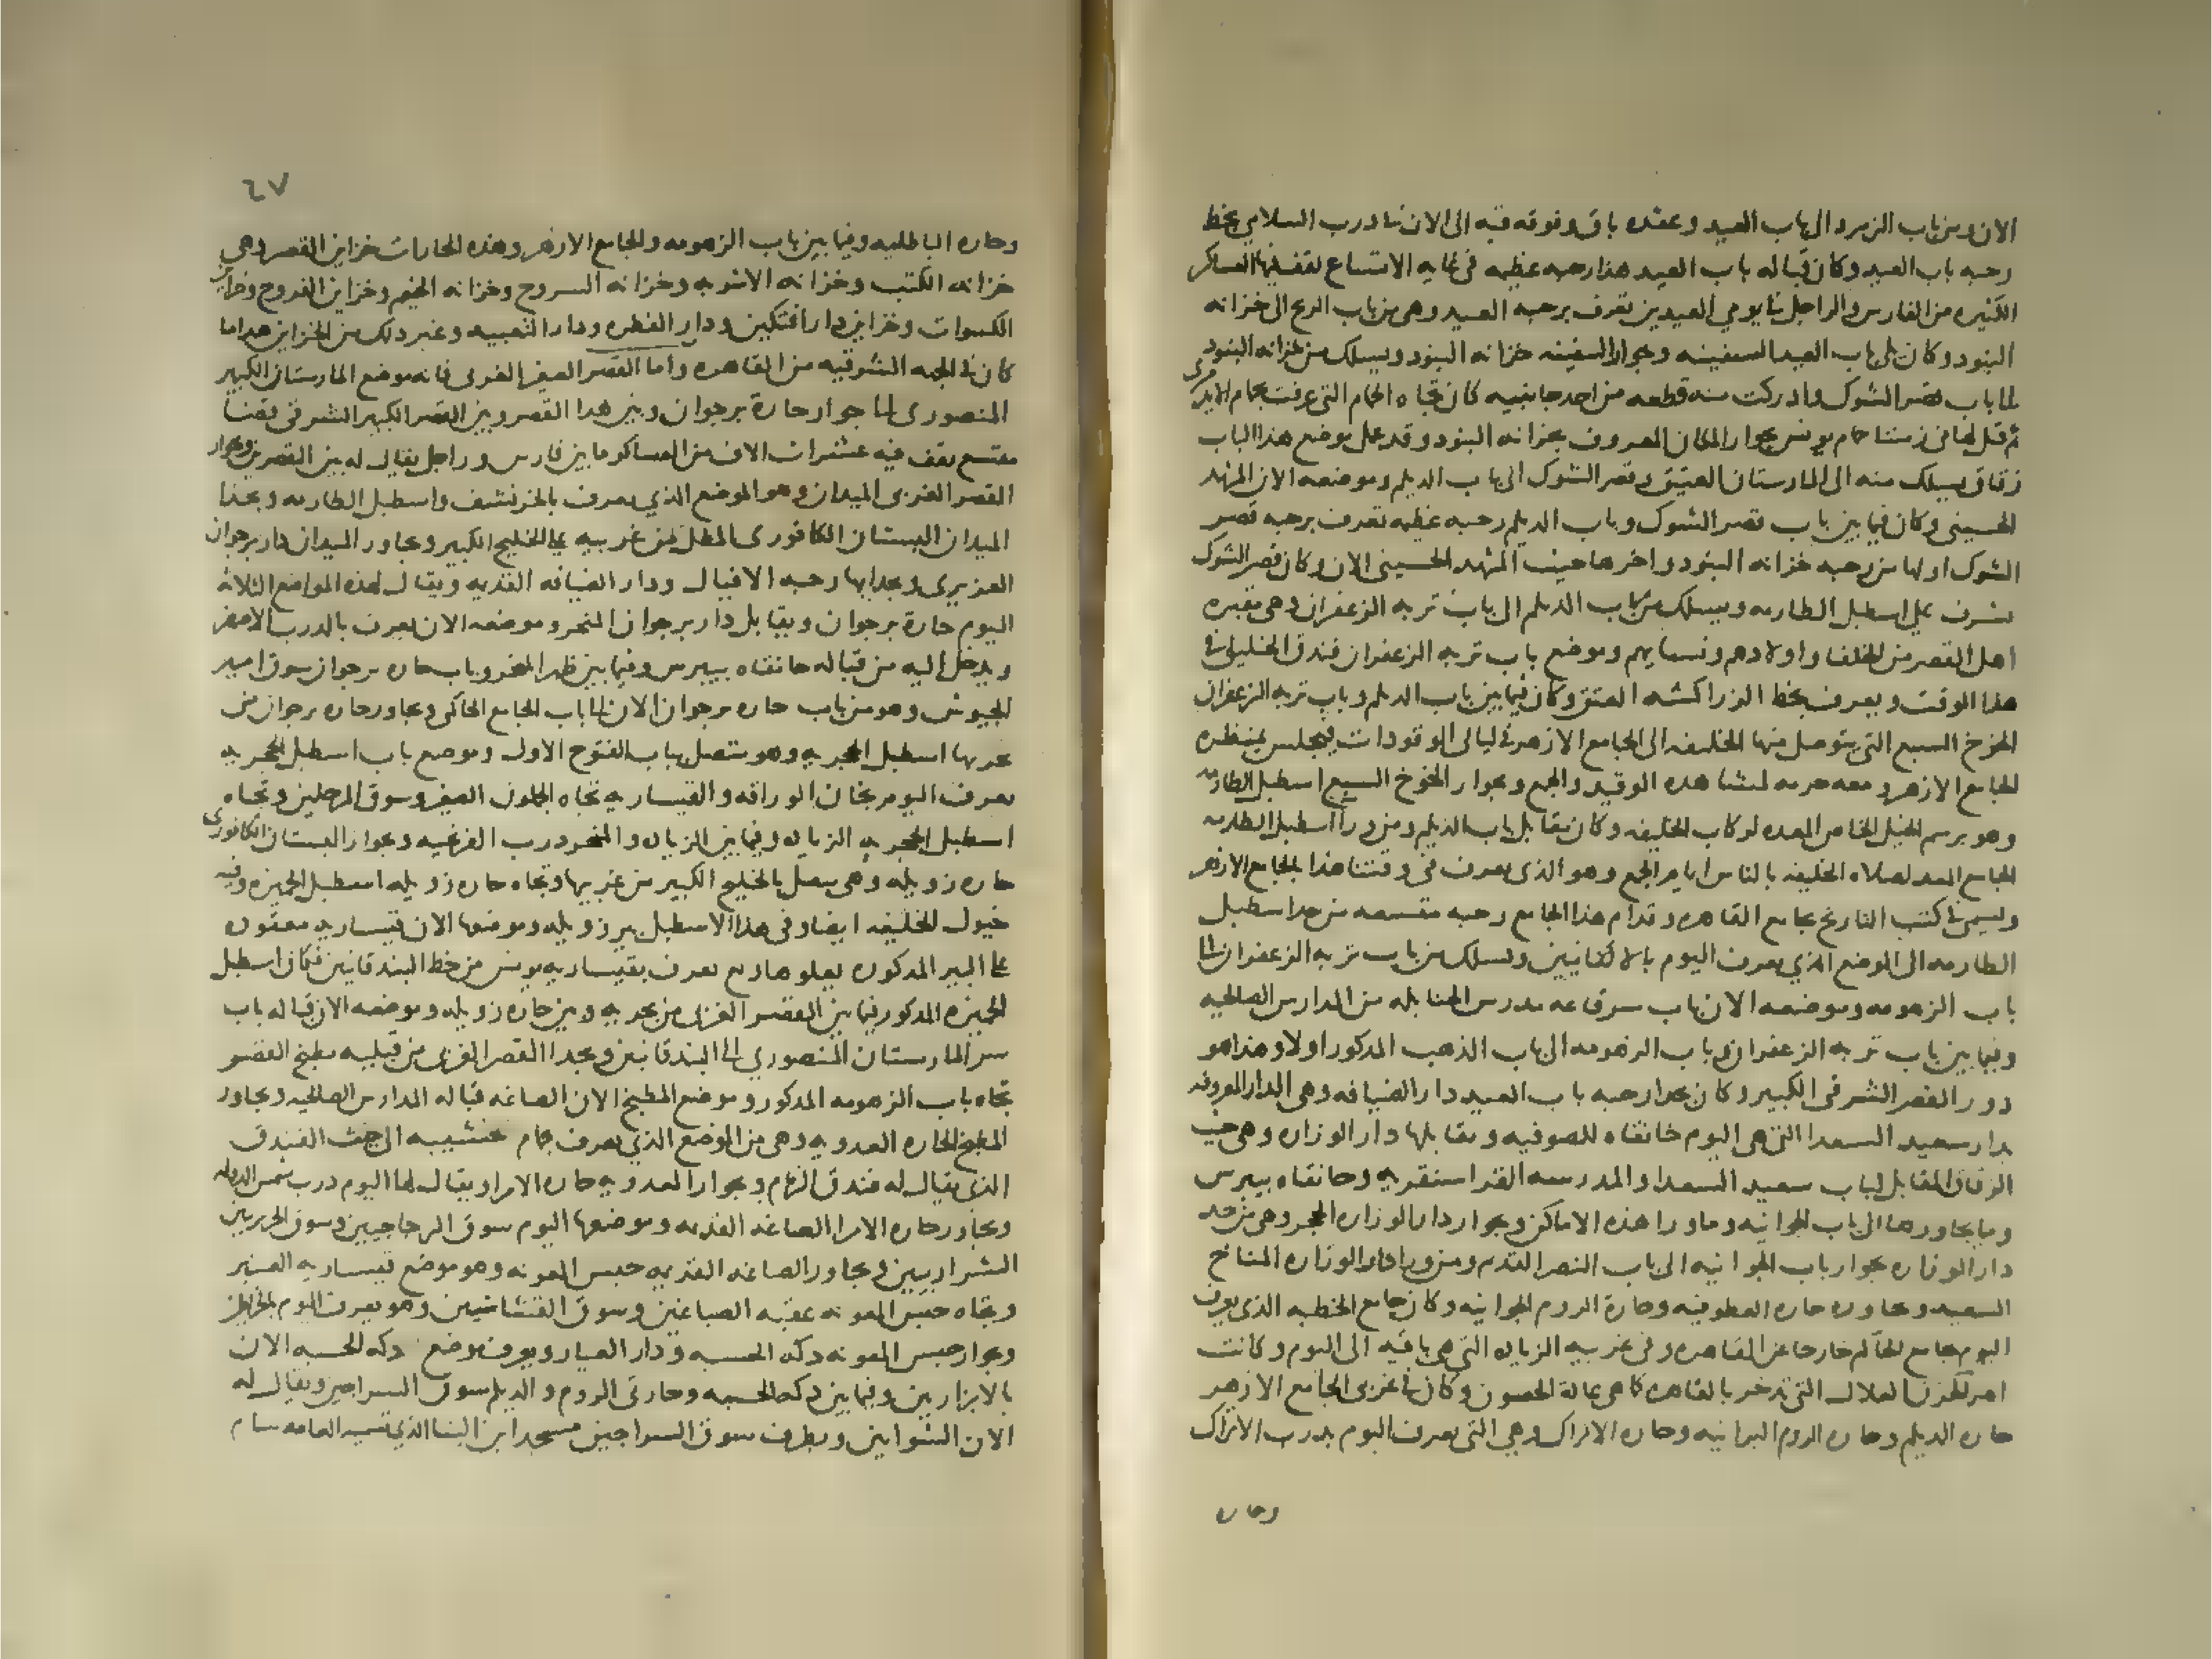 الان ومن باب الزمرد الى باب العيد وعقده باق وفوقه قبه الى الان في درب السلامي بخط
رحبه باب العيد وكان قباله باب العيد هذا رحبه عظيمه في غايه الاتساع تقف فيها العساكر
الكثيره من الفارس والراجل في يومي العيدين تعرف برحبه العيد وهي من باب الريح الى خزانه
البنود وكان يلي باب العيد السفينه وبجوار السفينه خزانه البنود ويسلك من خزانه البنود
الى باب قصر الشوك وادركت منه قطعه من احد جانبيه كان تجاه الحمام التي عرفت بحمام الايدمرى
ثم قيل لها في زمننا حمام يونس بجوار المكان المعروف بخزانه البنود وقد عمل موضع هذا الباب
زقاق يسلك منه الى المارستان العتيق وقصر الشوك الى باب الديلم وموضعه الان المشهد
الحسيني وكان فيما بين باب قصر الشوك وباب الديلم رحبه عظيمه تعرف برحبه قصر
الشوك اولها من رحبه خزانه البنود واخرها حيث المشهد الحسيني الان وكان قصر الشوك
يشرف على اسطبل الطارمه ويسلك من باب الديلم الى باب تربه الزعفران وهي مقبره
اهل القصر من الخلفا واولادهم ونسايهم وموضع باب تربه الزعفران فندق الخليلي في
هذا الوقت ويعرف بخط الزراكشه العتيق وكان فيما بين باب الديلم وباب تربه الزعفران
الخوخ السبع التي يتوصل منها الخليفه الى الجامع الازهر في ليالي الوقودات فيجلس بمنظره
الجامع الازهر ومعه حرمه لمشاهده الوقيد والجمع وبجوار الخوخ السبع اسطبل الطارمه
وهو برسم الخيل الخاص المعده لركاب الخليفه وكان مقابل باب الديلم ومن ورا اسطبل الطارمه
الجامع المعد لصلاه الخليفه بالناس ايام الجمع وهو الذي يعرف في وقتنا هذا بالجامع الازهر
ويسمى في كتب التاريخ بجامع القاهره وقدام هذا الجامع رحبه متسعه من حد اسطبل
الطارمه الى الموضع الذي يعرف اليوم بالاكفانيين ويسلك من باب تربه الزعفران الى
باب الزهومه وموضعه الان باب سر قاعه مدرس الحنابله من المدارس الصالحيه
وفيما بين باب تربه الزعفران وباب الزهومه الى باب الذهب المذكور اولا وهذا هو
دور القصر الشرقي الكبير وكان بحذا رحبه باب العيد دار الضيافه وهي الدار المعروفه
بدار سعيد السعدا التي هي اليوم خانقاه للصوفيه ويقابلها دار الوزاره وهي حيث
الزقاق المقابل لباب سعيد السعدا والمدرسه القراسنقريه وخانقاه بيبرس
وما يجاورها الى باب الجوانيه وما ورا هذه الاماكن وبجوار دار الوزاره الحجر وهي من حد
دار الوزاره بجوار باب الجوانيه الى باب النصر القديم ومن ورا دار الوزاره المناخ
السعيد ويجاوره حاره العطوفيه وحارة الروم الجوانيه وكان جامع الخطبه الذي يعرف
اليوم بجامع الحاكم خارجا عن القاهره وفي غربيه الزياده التي هي باقيه الى اليوم وكانت
اهرا لخزن الغلال التي تدخر بالقاهره كما هي عادة الحصون وكان في غربي الجامع الازهر
حاره الديلم وحاره الروم البرانيه وحاره الاتراك وهي التي تعرف اليوم بدرب الاتراك
وحاره
٤٧
وحاره الباطليه وفيما بين باب الزهومه والجامع الازهر وهذه الحارات خزاين القصر وهي
خزانه الكتب وخزانه الاشربه وخزانه السروج وخزانه الخيم وخزاين الفروج وخزاين
الكسوات وخزاين دار افتكين ودار الفطره ودار التعبيه وغير ذلك من الخزاين هذا ما
كان في الجهه الشرقيه من القاهره واما القصر الصغير الغربي فانه موضع المارستان الكبير
المنصوري الى جوار حارة برجوان وبين هذا القصر وبين القصر الكبير الشرقي فضا
متسع يقف فيه عشرات الاف من العساكر ما بين فارس وراجل يقال له بين القصرين وبجوار
القصر الغربي الميدان وهو الموضع الذي يعرف بالخرنشف واسطبل الطارمه وبحذا
الميدان البستان الكافوري المطل من غربيه على الخليج الكبير ويجاور الميدان دار برجوان
العزيزي وبحذايها رحبه الافيال ودار الضيافه القديمه ويقال لهذه المواضع الثلاثه
اليوم حارة برجوان ويقابل دار برجوان المنحر وموضعه الان يعرف بالدرب الاصفر
ويدخل اليه من قباله خانقاه بيبرس وفيما بين ظهر المنحر وباب حاره برجوان سوق امير
الجيوش وهو من باب حاره برجوان الان الى باب الجامع الحاكمي ويجاور حاره برجوان من
بحريها اسطبل الحجريه وهو متصل بباب الفتوح الاول وموضع باب اسطبل الحجريه
يعرف اليوم بخان الوراقه والقيساريه تجاه الجملون الصغير وسوق المرحلين وتجاه
اسطبل الحجريه الزياده وفيما بين الزياده والمنحر درب الفرنجيه وبجوار البستان الكافوري
حاره زويله وهي تتصل بالخليج الكبير من غربيها وتجاه حاره زويله اسطبل الجميزه وفيه
خيول الخليفه ايضا وفي هذا الاسطبل بير زويله وموضعها الان قيساريه معقوده
على البير المذكوره يعلوها ربع يعرف بقيساريه يونس من خط البندقانيين فكان اسطبل
الجميزه المذكور فيما بين القصر الغربي من بحريه وبين حاره زويله وموضعه الان قباله باب
سر المارستان المنصوري الى البندقانيين وبحذا القصر الغربي من قبليه مطبخ القصر
تجاه باب الزهومه المذكور وموضع المطبخ الان الصاغه قباله المدارس الصالحيه ويجاور
المطبخ الحاره العدويه وهي من الموضع الذي يعرف بحمام خشيبه الى حيث الفندق
الذي يقال له فندق الزمام وبجوار العدويه حاره الامرا ويقال لها اليوم درب شمس الدوله
ويجاور حاره الامرا الصاغه القديمه وموضعها اليوم سوق الزجاجيين وسوق الحريريين
الشراربيين ويجاور الصاغه القديمه حبس المعونه وهو موضع قيساريه العنبر
وتجاه حبس المعونه عقبه الصباغين وسوق القشاشين وهو يعرف اليوم بالخراطين
وبجوار حبس المعونه دكه الحسبه ودار العيار ويعرف موضع دكه الحسبه الان
بالابزاريين وفيما بين دكه الحسبه وحارتي الروم والديلم سوق السراجين ويقال له
الان الشوايين وبطرف سوق السراجين مسجد ابن البنا الذي تسميه العامه سام